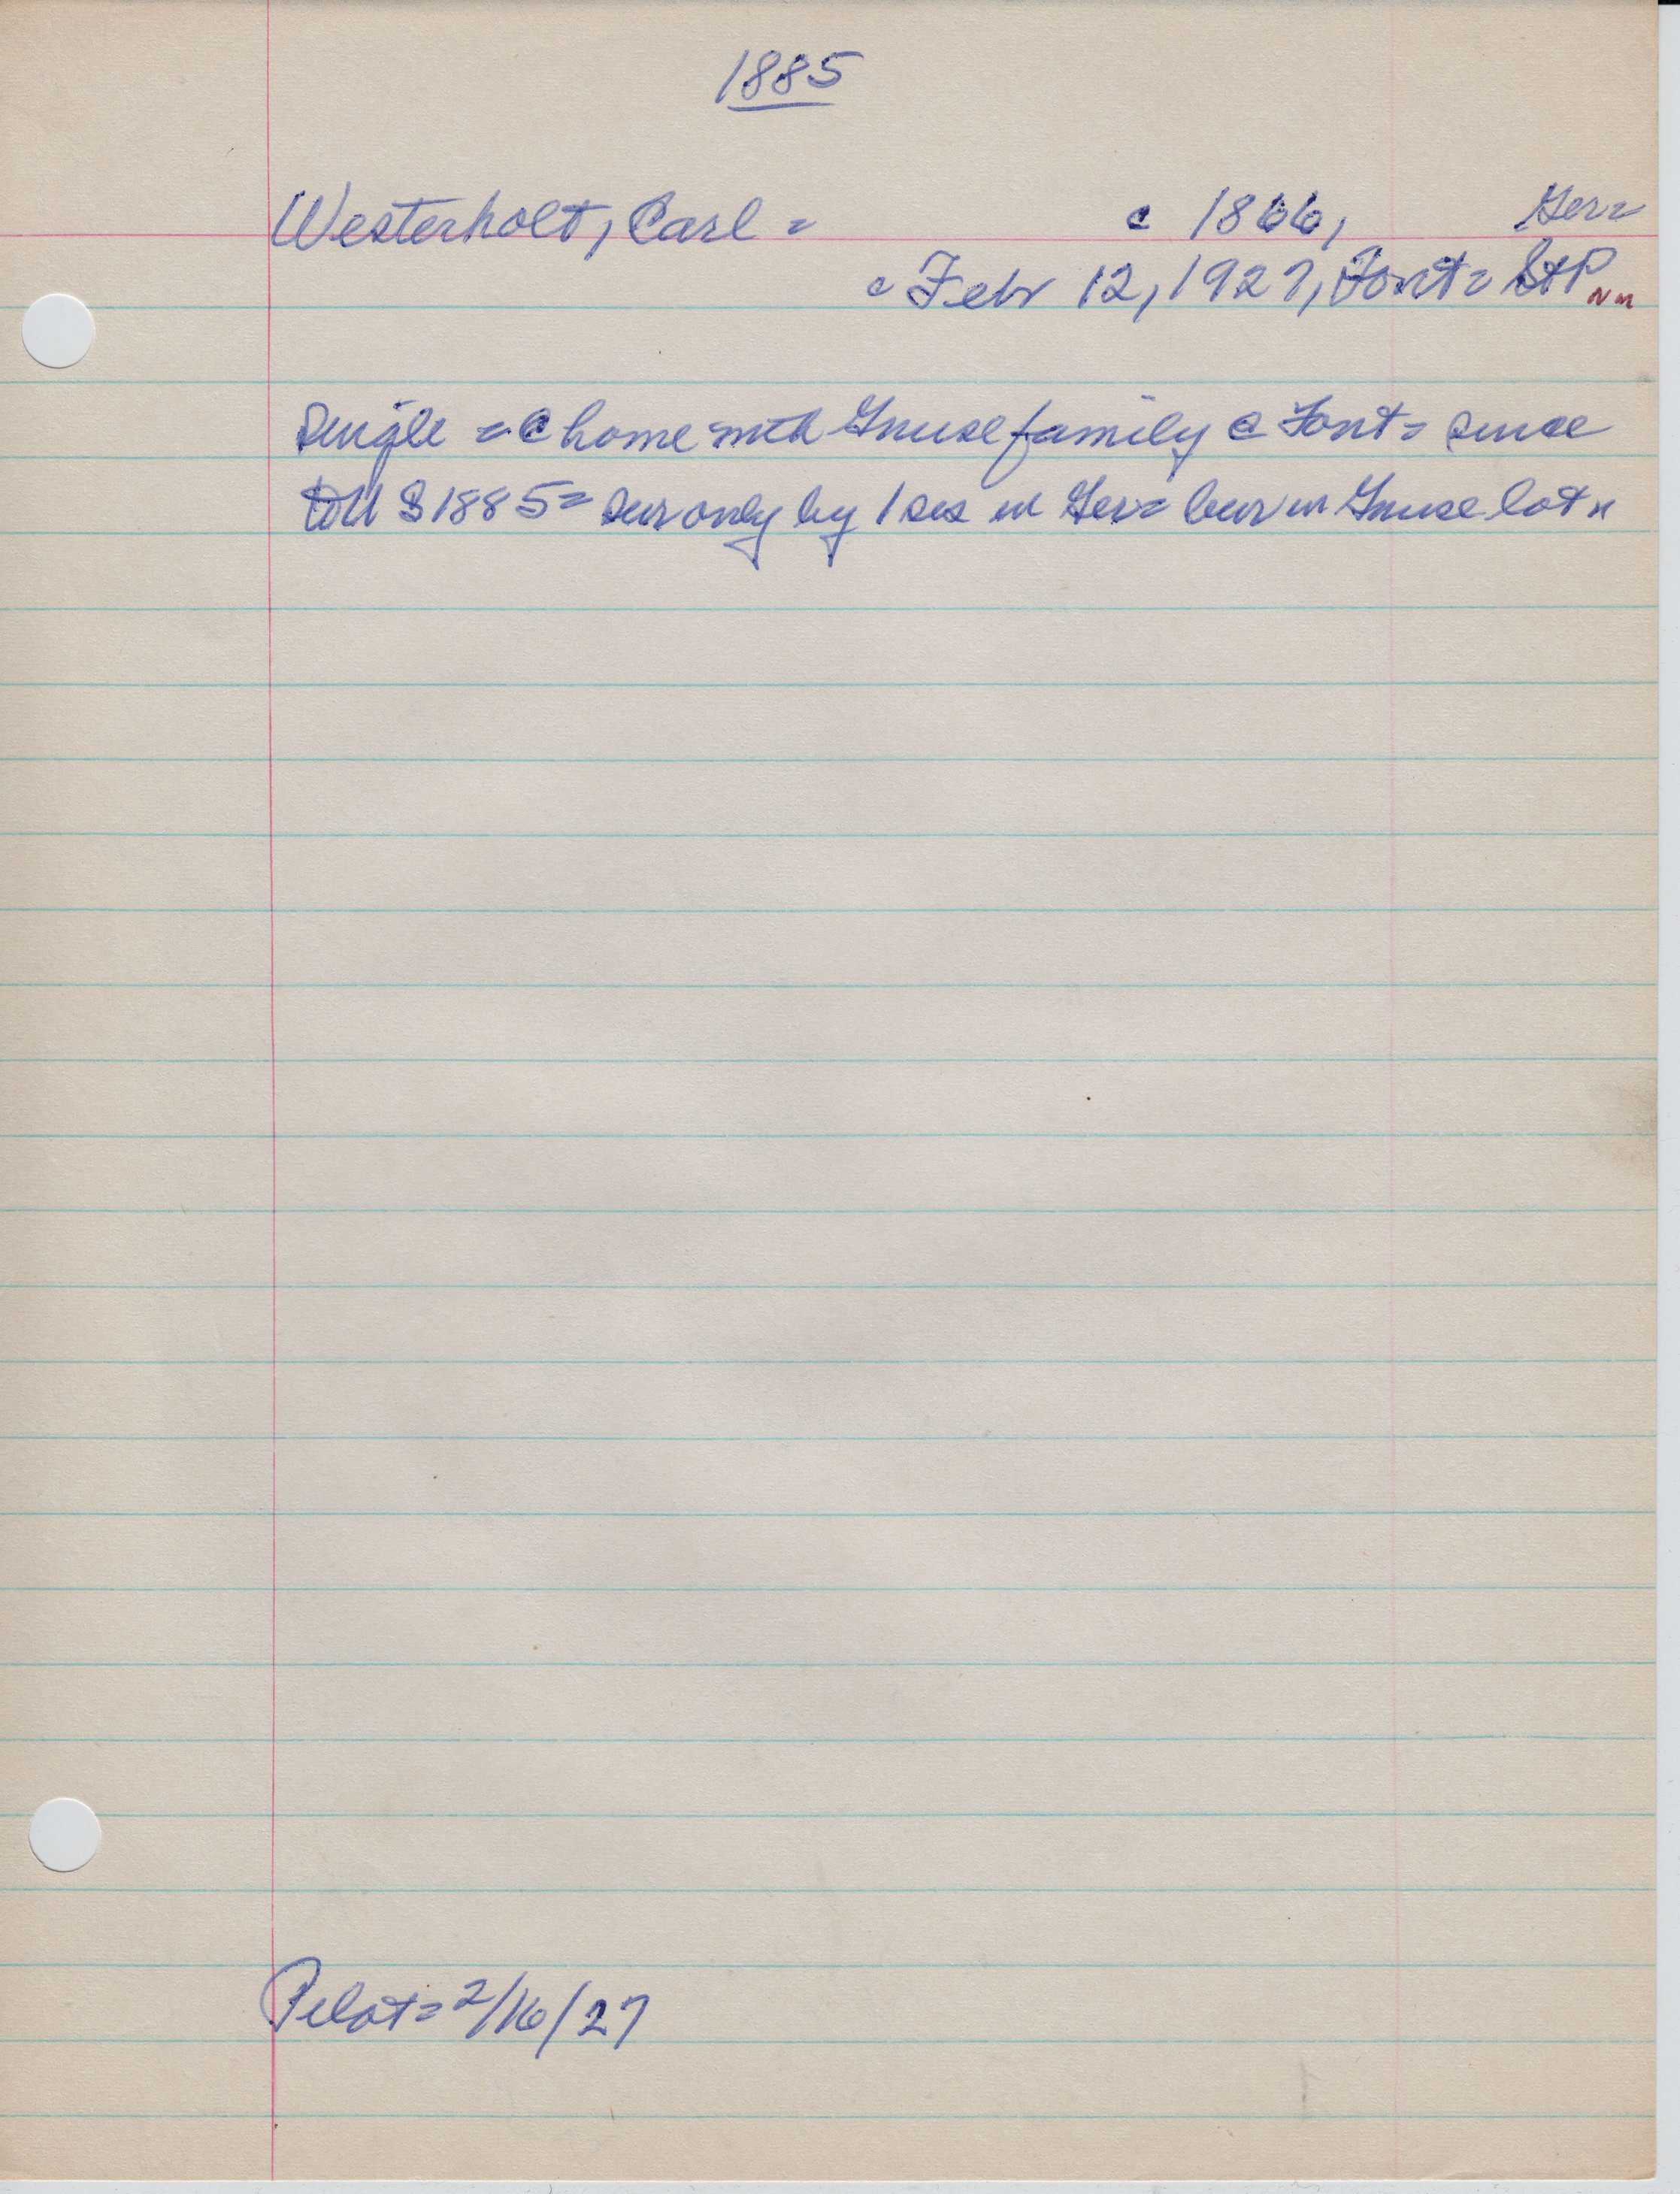 1885
Westerholt, Carl = c 1866, Ger=
c Febr 12, 1927, Font= St P Nm
Single = @ home with Gnuse family @ Font= since
to U S 1885= sur only by 1 sis in Ger= bur in Gnuse lot n
Pilot= 2/16/27